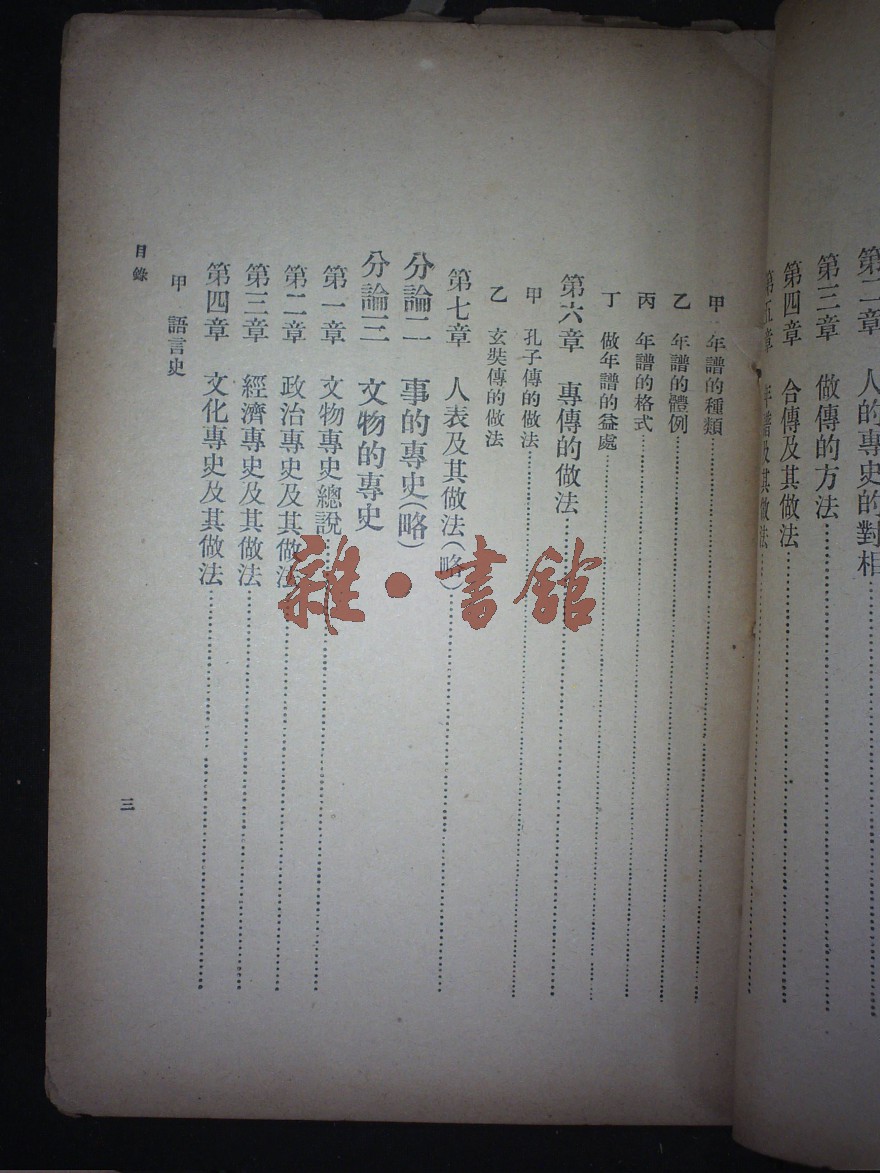 第二章　人的專史的對相
第三章　做傳的方法
第四章　合傳及其做法
第五章　年譜及其做法
甲　年譜的種類
乙　年譜的體例
丙　年譜的格式
丁　做年譜的益處
第六章　專傳的做法
甲　孔子傳的做法
乙　玄奘傳的做法
第七章　人表及其做法(略)
分論二　事的專史(略)
分論三　文物的專史
第一章　文物專史總說
第二章　政治專史及其做法
第三章　經濟專史及其做法
第四章　文化專史及其做法
甲　語言史
目錄
三
雜·書館